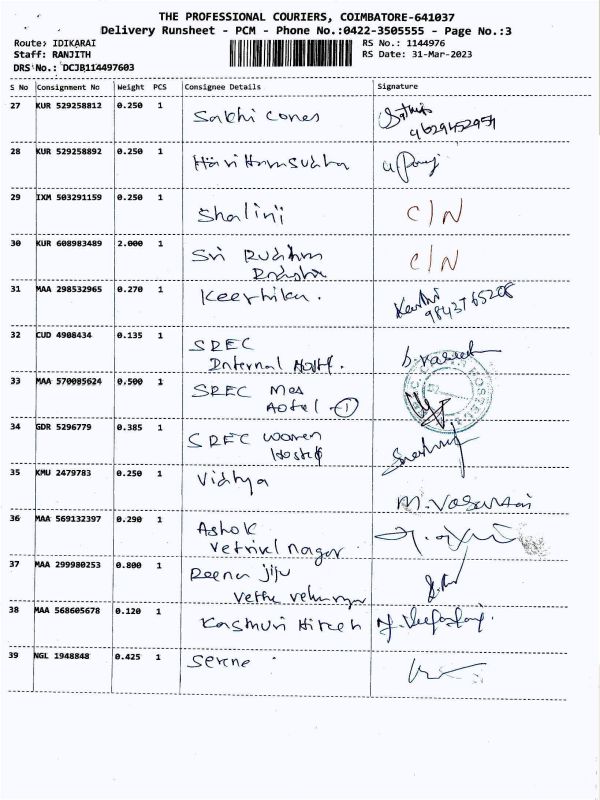 THE PROFESSIONAL COURIERS, COIMBATORE-641037
Delivery Runsheet - PCM - Phone No.:0422-3505555 - Page No.:3
Route: IDIKARAI RS No.: 1144976
Staff: RANJITH RS Date: 31-Mar-2023
DRS No.: DCJB114497603
S No Consignment No Weight PCS Consignee Details Signature
27 KUR 529258812 0.250 1 Sakhi Cones
28 KUR 529258892 0.250 1
29 IXM 503291159 0.250 1 Shalini C/N
30 KUR 608983489 2.000 1 Sri C/N
31 MAA 298532965 0.270 1 Keerthika. Keerthi
9843765208
32 CUD 4908434 0.135 1 SREC
33 MAA 570085624 0.500 1 SREC Mes
1
34 GDR 5296779 0.385 1 SREC women
35 KMU 2479783 0.250 1 Vidhya
36 MAA 569132397 0.290 1 Ashok
nagar
37 MAA 299980253 0.800 1 Reena jiju
38 MAA 568605678 0.120 1 Kasthuri
39 NGL 1948848 0.425 1 Serene